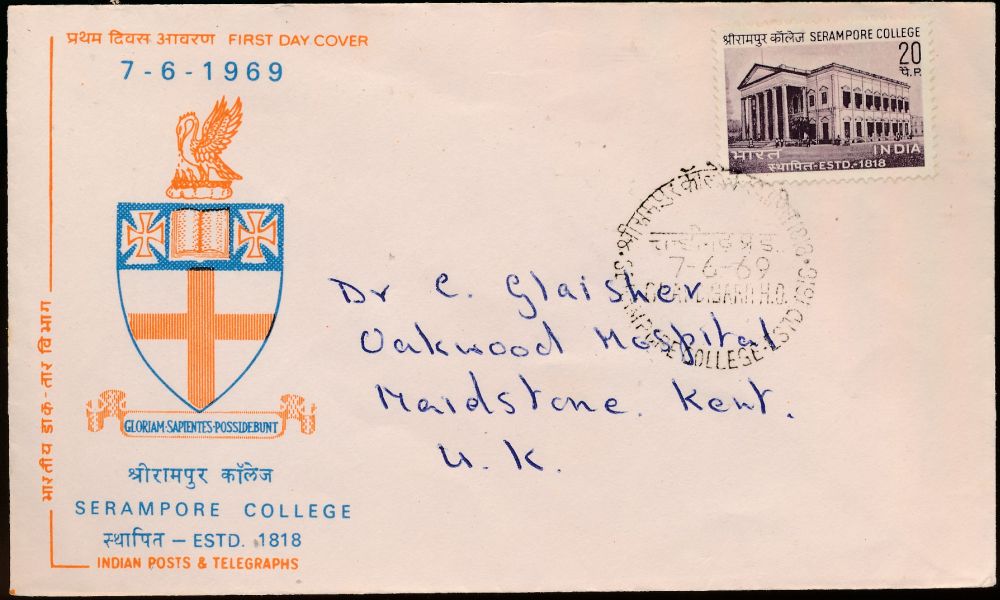 प्रथम दिवस आवरण FIRST DAY COVER
7-6-1969
GLORIAM·SAPIENTES·POSSIDEBUNT
श्रीरामपुर कॉलेज
SERAMPORE COLLEGE
स्थापित – ESTD. 1818
INDIAN POSTS & TELEGRAPHS
भारतीय डाक-तार विभाग
श्रीरामपुर कॉलेज SERAMPORE COLLEGE
20
पै.P.
भारत INDIA
स्थापित-ESTD.-1818
श्रीरामपुर कॉलेज
7-6-69
CHANDIGARH H.O.
COLLEGE-ESTD 1818
Dr C. Glaisher
Oakwood Hospital
Maidstone. Kent.
U.K.